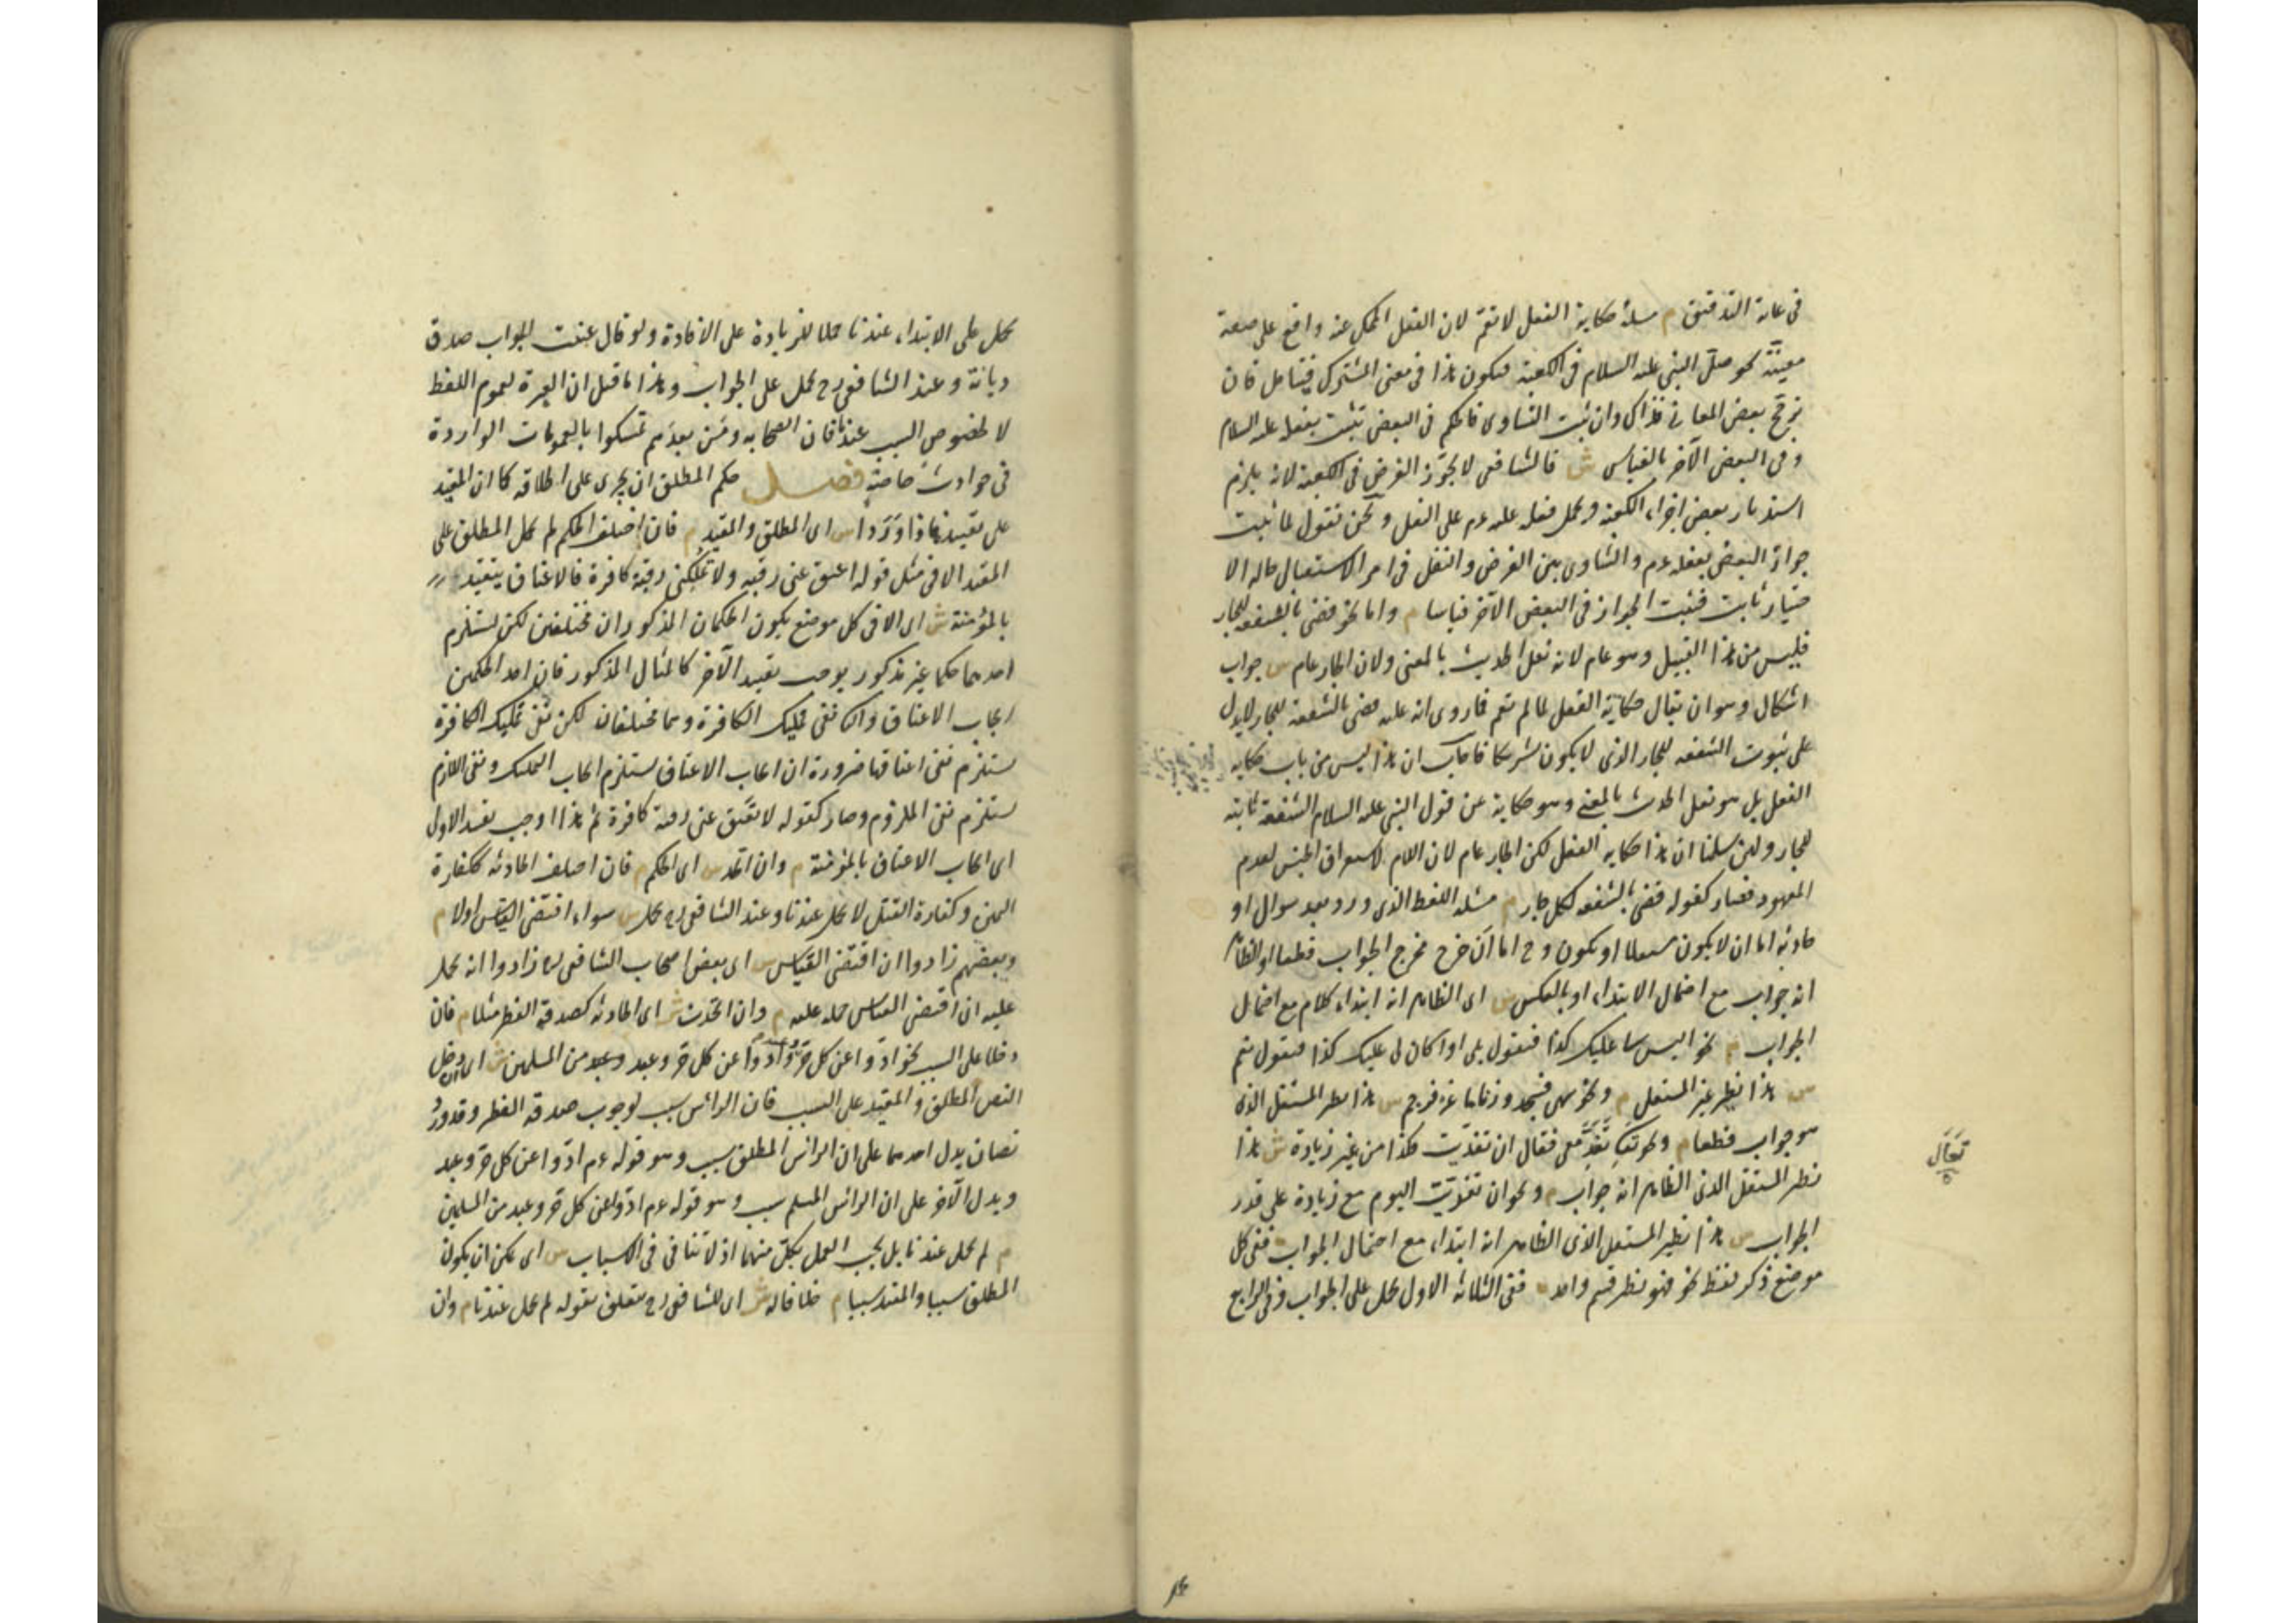 في غاية التدقيق م مسئلة حكاية الفعل لا تعم لان الفعل المحكي عنه واقع على صفة
معينة نحو صلى النبي عليه السلام في الكعبة فيكون هذا في معنى المشترك فيتامل فان
ترجح بعض المعاني فذاك وان ثبت التساوى فالحكم في البعض يثبت بفعله عليه السلام
وفي البعض الآخر بالقياس ش قال الشافعي لا يجوز الفرض في الكعبة لانه يلزم
استدبار بعض اجزاء الكعبة ويحمل فعله عليه عم على النفل ونحن نقول لما ثبت
جواز البعض بفعله عم والتساوى بين الفرض والنفل في امر الاستقبال حالة الا
ختيار ثابت فيثبت الجواز في البعض الآخر قياسا م واما نحو قضى بالشفعة للجار
فليس من هذا القبيل وهو عام لانه نقل الحديث بالمعنى ولان الجار عام ش جواب
اشكال وهو ان يقال حكاية الفعل لما لم تعم فما روى انه عليه قضى بالشفعة للجار لا يدل
على ثبوت الشفعة للجار الذى لا يكون شريكا فاجاب ان هذا ليس من باب حكاية
الفعل بل هو نقل الحديث بالمعنى وهو حكاية عن قول النبي عليه السلام الشفعة ثابتة
للجار ولئن سلمنا ان هذا حكاية الفعل لكن الجار عام لان اللام لاستغراق الجنس لعدم
المعهود فصار كقوله قضى بالشفعة لكل جار م مسئلة اللفظ الذى ورد بعد سوال او
حادثة اما ان لا يكون مستقلا او يكون وح اما ان خرج مخرج الجواب قطعا او الظاهر
انه جواب مع احتمال الابتداء او بالعكس ش اى الظاهر انه ابتداء كلام مع احتمال
الجواب م نحو اليس لى عليك كذا فيقول بلى او اكان لى عليك كذا فيقول نعم
ش هذا نظير غير المستقل م ونحو سهى فسجد وزنا ماعز فرجم ش هذا نظير المستقل الذى
هو جواب قطعا م ونحو تعال تغد معى فقال ان تغديت فكذا من غير زيادة ش هذا
تعال
نظير المستقل الذى الظاهر انه جواب م ونحو ان تغديت اليوم مع زيادة على قدر
الجواب ش هذا نظير المستقل الذى الظاهر انه ابتداء مع احتمال الجواب ففى كل
موضع ذكر لفظ نحو فهو نظير قسم واحد م ففى الثلاثة الاول يحمل على الجواب وفى الرابع
يحمل على الابتداء عندنا حملا للزيادة على الافادة ولو قال عنيت الجواب صدق
ديانة وعند الشافعي رح يحمل على الجواب وهذا ما قيل ان العبرة لعموم اللفظ
لا لخصوص السبب عندنا فان الصحابة ومن بعدهم تمسكوا بالعمومات الواردة
في حوادث خاصة فصل حكم المطلق ان يجرى على اطلاقه كما ان المقيد
على تقييده فاذا وردا ش اى المطلق والمقيد م فان اختلف الحكم لم يحمل المطلق على
المقيد الا في مثل قوله اعتق عنى رقبة ولا تملكنى رقبة كافرة فالاعتاق يتقيد
بالمؤمنة ش اى الا في كل موضع يكون الحكمان المذكوران مختلفين لكن يستلزم
احدهما حكما غير مذكور يوجب تقييد الآخر كالمثال المذكور فان احد الحكمين
ايجاب الاعتاق والثانى نفى تمليك الكافرة وهما مختلفان لكن نفى تمليك الكافرة
يستلزم نفى اعتاقها ضرورة ان ايجاب الاعتاق يستلزم ايجاب التمليك ونفى اللازم
يستلزم نفى الملزوم وصار كقوله لا تعتق عنى رقبة كافرة ثم هذا اوجب تقييد الاول
اى ايجاب الاعتاق بالمؤمنة م وان اتحد ش اى الحكم م فان اختلف الحادثة ككفارة
اليمين وكفارة القتل لا يحمل عندنا وعند الشافعي رح يحمل ش سواء اقتضى القياس اولا م
وبعضهم زادوا ان اقتضى القياس ش اى بعض اصحاب الشافعي رح زادوا انه يحمل
عليه ان اقتضى القياس حمله عليه م وان اتحدت ش اى الحادثة كصدقة الفطر مثلا م فان
دخلا على السبب نحو ادوا عن كل حر وعبد وادوا عن كل حر وعبد من المسلمين ش اى ان دخل
النص المطلق والمقيد على السبب فان الرأس سبب لوجوب صدقة الفطر وقد ورد
نصان يدل احدهما على ان الرأس المطلق سبب وهو قوله عم ادوا عن كل حر وعبد
ويدل الآخر على ان الرأس المسلم سبب وهو قوله عم ادوا عن كل حر وعبد من المسلمين
م لم يحمل عندنا بل يجب العمل بكل منهما اذ لا تنافى في الاسباب ش اى يمكن ان يكون
المطلق سببا والمقيد سببا م خلافا له ش اى للشافعي رح متعلق بقوله لم يحمل عندنا م وان